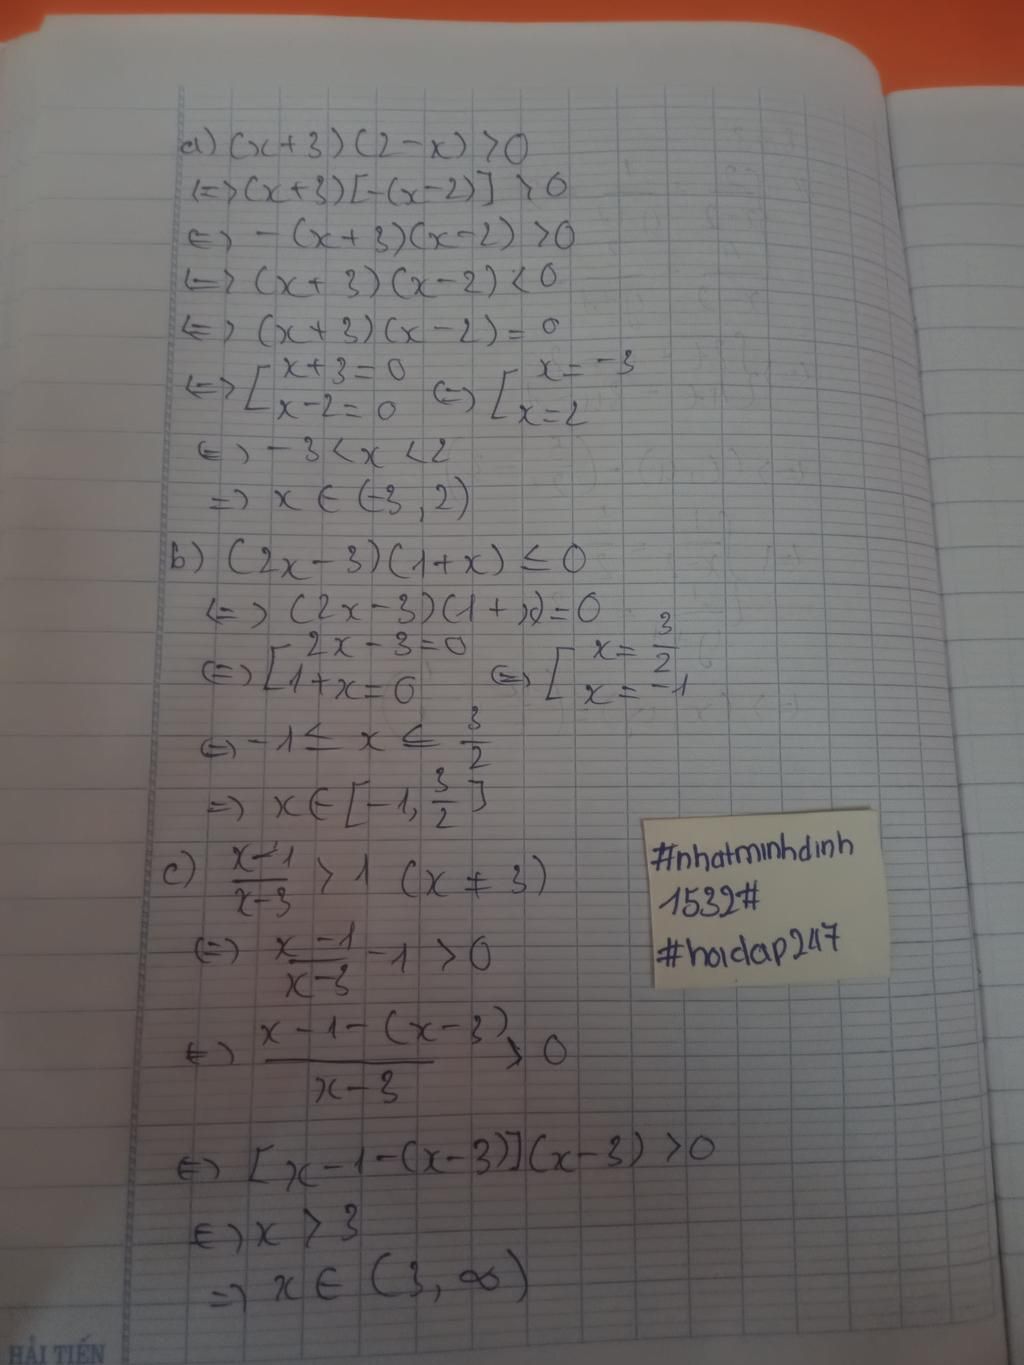 a) (x+3)(2-x) > 0
<=> (x+3)[-(x-2)] > 0
<=> -(x+3)(x-2) > 0
<=> (x+3)(x-2) < 0
<=> (x+3)(x-2) = 0
<=> [ x+3 = 0 <=> [ x = -3
x-2 = 0 x = 2
<=> -3 < x < 2
=> x ∈ (-3, 2)
b) (2x-3)(1+x) ≤ 0
<=> (2x-3)(1+x) = 0
<=> [ 2x-3 = 0 <=> [ x = 3/2
1+x = 0 x = -1
<=> -1 ≤ x ≤ 3/2
=> x ∈ [-1, 3/2]
c) x-1/x-3 > 1 (x ≠ 3)
<=> x-1/x-3 - 1 > 0
<=> x-1-(x-3)/x-3 > 0
<=> [x-1-(x-3)](x-3) > 0
<=> x > 3
=> x ∈ (3, ∞)
#nhatminhdinh
1532#
#hoidap247
HẢI TIẾN